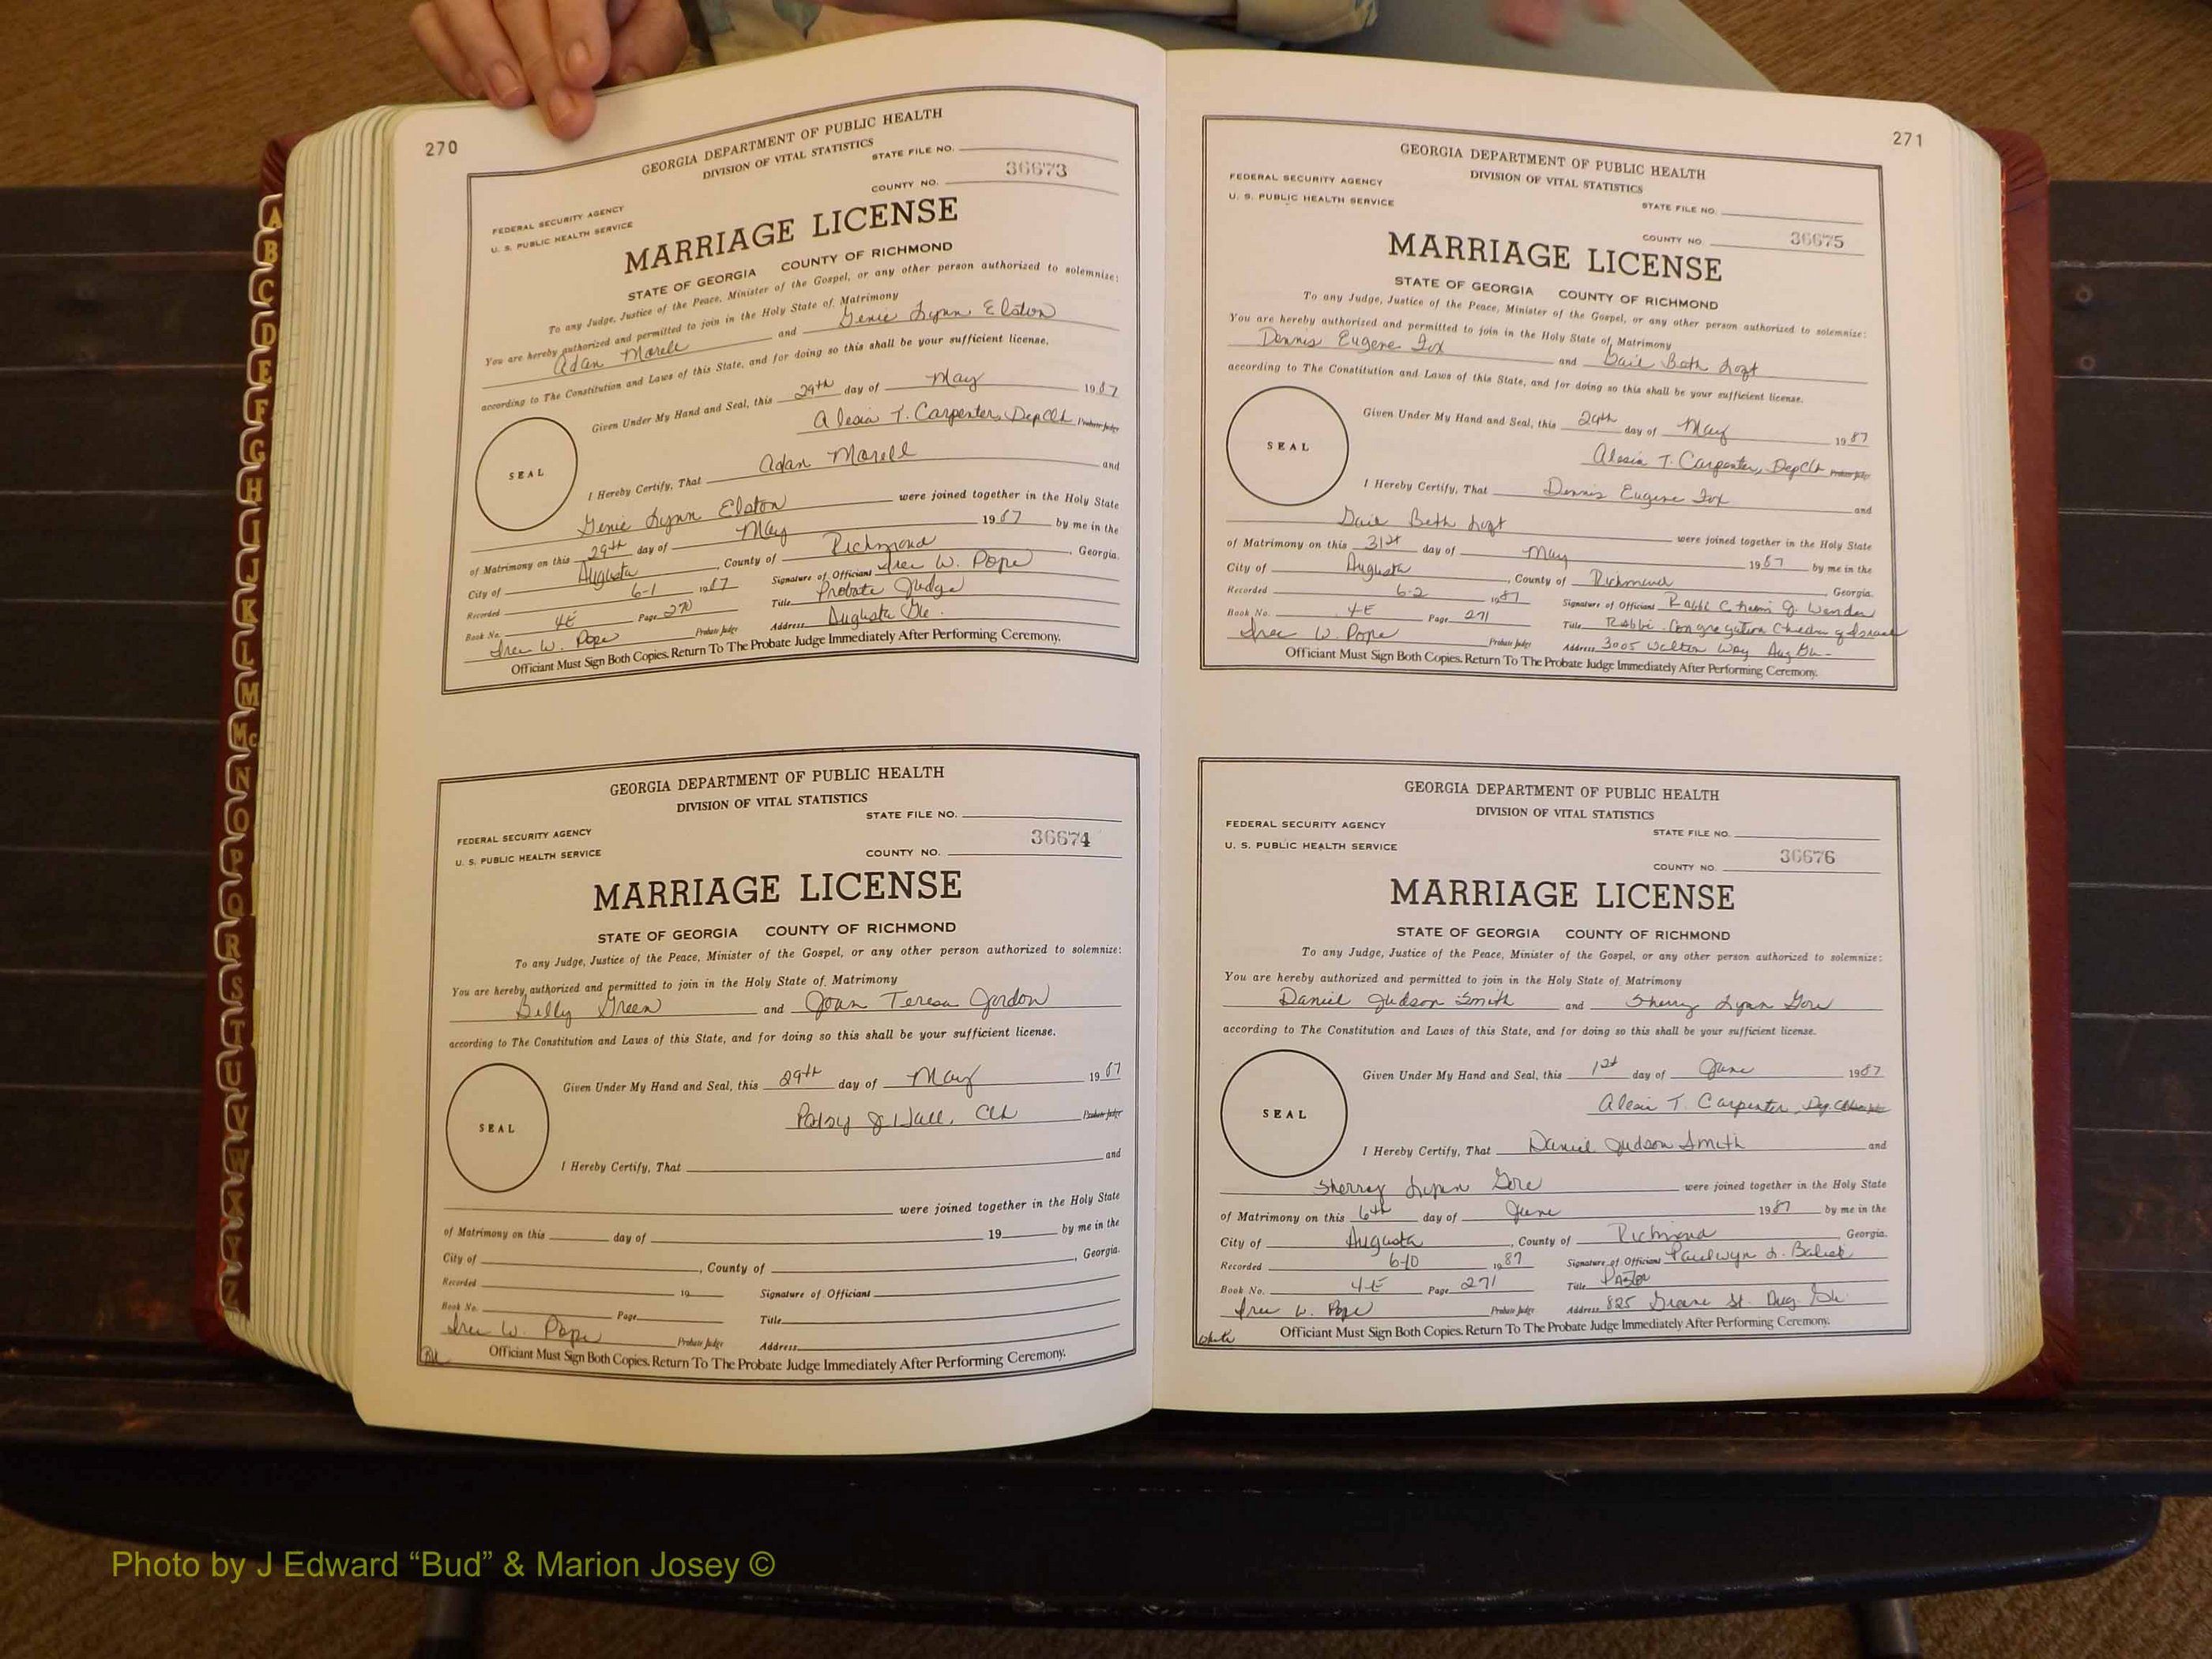 270
GEORGIA DEPARTMENT OF PUBLIC HEALTH
DIVISION OF VITAL STATISTICS
STATE FILE NO.
36673
COUNTY NO.
FEDERAL SECURITY AGENCY
U. S. PUBLIC HEALTH SERVICE
MARRIAGE LICENSE
STATE OF GEORGIA COUNTY OF RICHMOND
To any Judge, Justice of the Peace, Minister of the Gospel, or any other person authorized to solemnize:
You are hereby authorized and permitted to join in the Holy State of Matrimony
Adan Morell and Genie Lynn Elston
according to The Constitution and Laws of this State, and for doing so this shall be your sufficient license.
Given Under My Hand and Seal, this 29th day of May 1987
Alesia T. Carpenter, Dep Clk Probate Judge
SEAL
I Hereby Certify, That Adan Morell and
Genie Lynn Elston were joined together in the Holy State
of Matrimony on this 29th day of May 1987 by me in the
City of Augusta, County of Richmond, Georgia.
Recorded 6-1 1987 Signature of Officiant W. Pope
Book No. 4E Page 270 Title Probate Judge
W. Pope Probate Judge Address Augusta Ga.
Officiant Must Sign Both Copies. Return To The Probate Judge Immediately After Performing Ceremony.
GEORGIA DEPARTMENT OF PUBLIC HEALTH
DIVISION OF VITAL STATISTICS
STATE FILE NO.
FEDERAL SECURITY AGENCY
36674
U. S. PUBLIC HEALTH SERVICE
COUNTY NO.
MARRIAGE LICENSE
STATE OF GEORGIA COUNTY OF RICHMOND
To any Judge, Justice of the Peace, Minister of the Gospel, or any other person authorized to solemnize:
You are hereby authorized and permitted to join in the Holy State of Matrimony
Billy Green and Joan Teresa Jordon
according to The Constitution and Laws of this State, and for doing so this shall be your sufficient license.
Given Under My Hand and Seal, this 29th day of May 1987
Patsy J Hall, Clk Probate Judge
SEAL
I Hereby Certify, That and
were joined together in the Holy State
of Matrimony on this day of 19 by me in the
City of , County of , Georgia.
Recorded 19 Signature of Officiant
Book No. Page Title
W. Pope Probate Judge Address
Officiant Must Sign Both Copies. Return To The Probate Judge Immediately After Performing Ceremony.
271
GEORGIA DEPARTMENT OF PUBLIC HEALTH
DIVISION OF VITAL STATISTICS
FEDERAL SECURITY AGENCY
U. S. PUBLIC HEALTH SERVICE
STATE FILE NO.
COUNTY NO. 36675
MARRIAGE LICENSE
STATE OF GEORGIA COUNTY OF RICHMOND
To any Judge, Justice of the Peace, Minister of the Gospel, or any other person authorized to solemnize:
You are hereby authorized and permitted to join in the Holy State of Matrimony
Dennis Eugene Fox and Gail Beth
according to The Constitution and Laws of this State, and for doing so this shall be your sufficient license.
Given Under My Hand and Seal, this 29th day of May 1987
Alesia T. Carpenter, Dep Clk Probate Judge
SEAL
I Hereby Certify, That Dennis Eugene Fox and
Gail Beth were joined together in the Holy State
of Matrimony on this 31st day of May 1987 by me in the
City of Augusta, County of Richmond, Georgia.
Recorded 6-2 1987 Signature of Officiant Rabbi
Book No. 4E Page 271 Title Rabbi Congregation of Israel
W. Pope Probate Judge Address 3005 Walton Way Aug Ga
Officiant Must Sign Both Copies. Return To The Probate Judge Immediately After Performing Ceremony.
GEORGIA DEPARTMENT OF PUBLIC HEALTH
DIVISION OF VITAL STATISTICS
FEDERAL SECURITY AGENCY
STATE FILE NO.
U. S. PUBLIC HEALTH SERVICE
COUNTY NO. 36676
MARRIAGE LICENSE
STATE OF GEORGIA COUNTY OF RICHMOND
To any Judge, Justice of the Peace, Minister of the Gospel, or any other person authorized to solemnize:
You are hereby authorized and permitted to join in the Holy State of Matrimony
Daniel Judson Smith and Sherry Lynn Gore
according to The Constitution and Laws of this State, and for doing so this shall be your sufficient license.
Given Under My Hand and Seal, this 1st day of June 1987
Alesia T. Carpenter, Dep. Clk Probate Judge
SEAL
I Hereby Certify, That Daniel Judson Smith and
Sherry Lynn Gore were joined together in the Holy State
of Matrimony on this 6th day of June 1987 by me in the
City of Augusta, County of Richmond, Georgia.
Recorded 6-10 1987 Signature of Officiant Paulwyn L.
Book No. 4E Page 271 Title Pastor
W. Pope Probate Judge Address 825 Greene St. Aug. Ga.
Officiant Must Sign Both Copies. Return To The Probate Judge Immediately After Performing Ceremony.
A
B
C
D
E
F
G
H
I
J
K
L
M
Mc
N
O
P
Q
R
S
T
U
V
W
X
Y
Z
Photo by J Edward “Bud” & Marion Josey ©